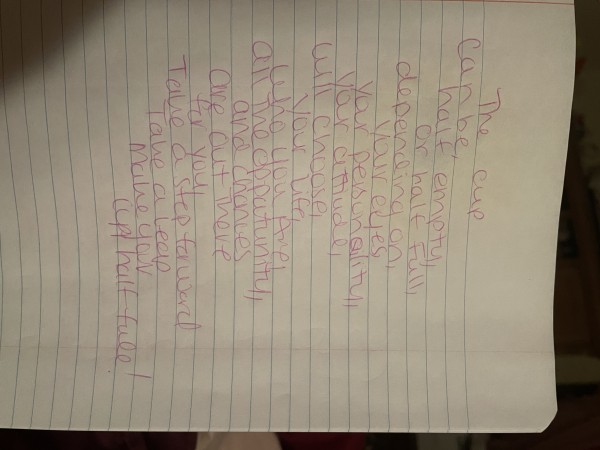 The cup
can be, half empty,
or half full,
depending on,
your eyes
your personality,
your attitude,
will choose,
your life,
who you are!
all the opportunity,
and changes
are out there
for you
Take a step forward
take a leap
Make your
cup half-full!